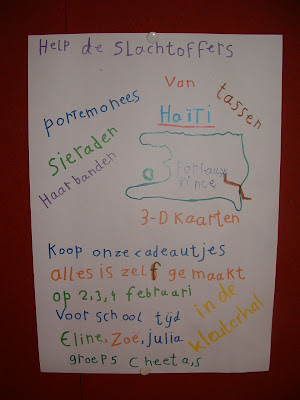 Help de slachtoffers
van
Haïti
tassen
portemonees
sieraden
Haarbanden
Port aux
Prince
3-D Kaarten
Koop onze cadeautjes
alles is zelf gemaakt
op 2,3,4 februari
voor school tijd
in de
kleuterhal
Eline, Zoë, julia
groep 5 cheeta,s